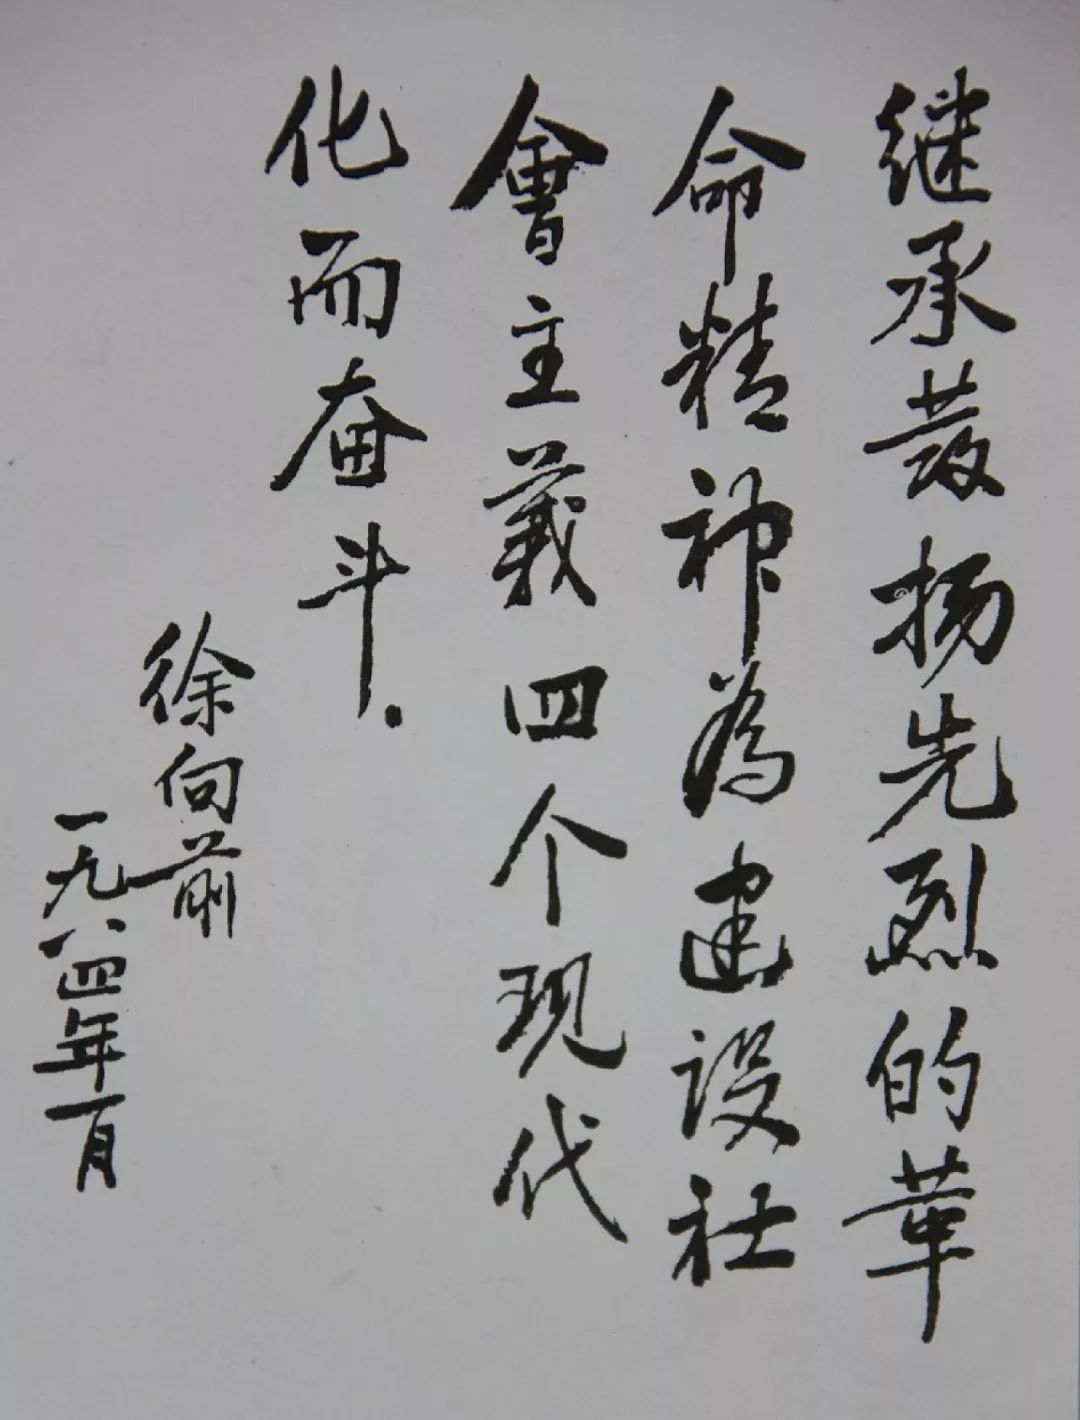 继承发扬先烈的革
命精神為建设社
會主義四个现代
化而奋斗.
徐向前
一九八四年一月